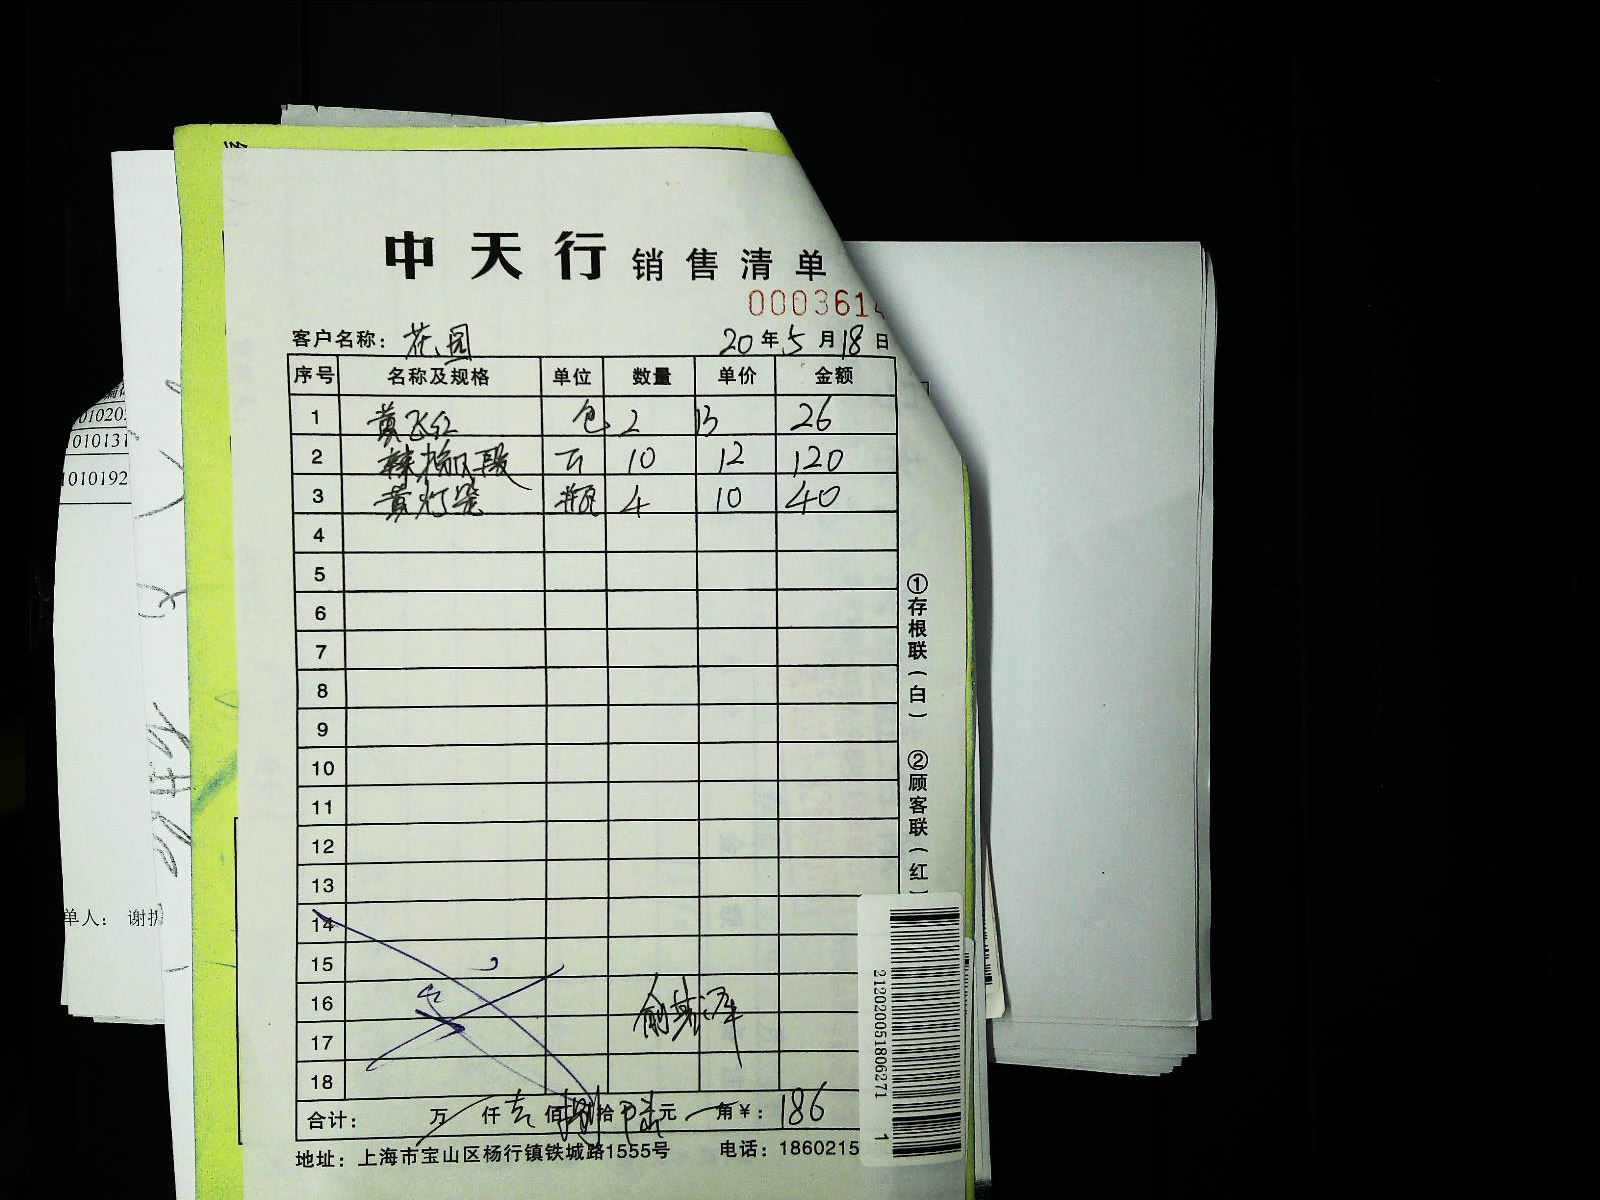 中天行 销售清单
000361
客户名称: 花园 20年5月18日
序号 名称及规格 单位 数量 单价 金额
1 黄飞红 包 2 13 26
2 10 12 120
3 黄灯笼 瓶 4 10 40
4
5
6
7
8
9
10
11
12
13
14
15
16
17
18
合计: 万 仟 壹佰捌拾陆元 角¥: 186
地址: 上海市宝山区杨行镇铁城路1555号 电话: 1860215
①存根联(白) ②顾客联(红
21202005180627 1 1
01020
1010131
1010192
单人: 谢